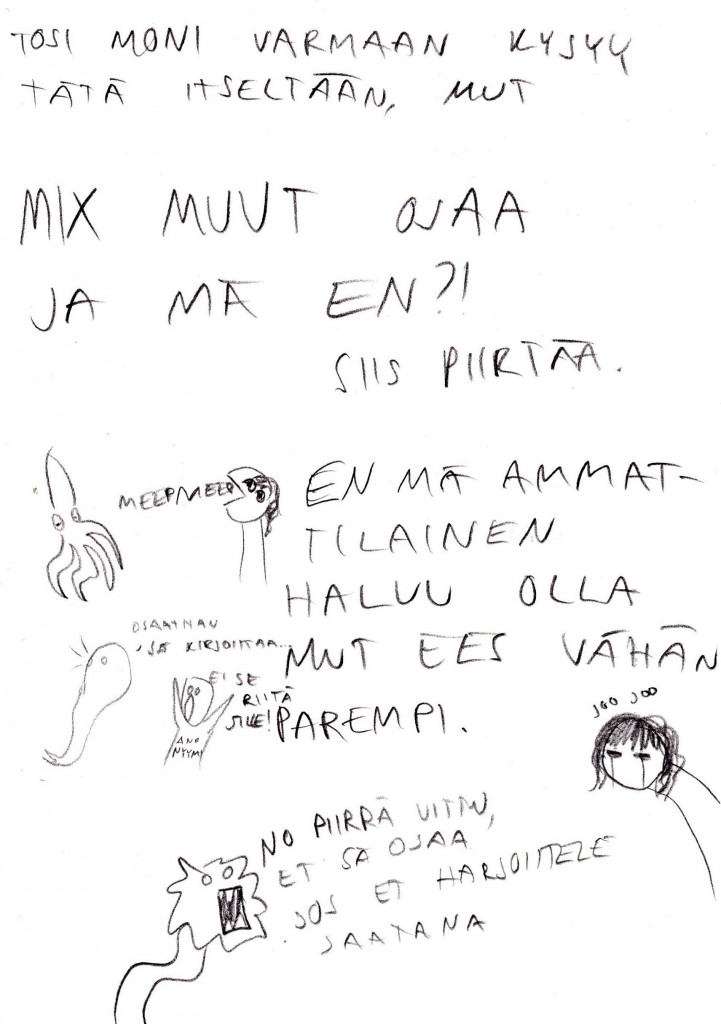 TOSI MONI VARMAAN KYSYY
TÄTÄ ITSELTÄÄN, MUT
MIX MUUT OSAA
JA MÄ EN?!
SIIS PIIRTÄÄ.
MEEPMEEP
EN MÄ AMMAT-
TILAINEN
HALUU OLLA
MUT EES VÄHÄN
PAREMPI.
OSAATHAN
SÄ KIRJOITTAA...
EI SE
RIITÄ
ANO
NYYMI
JOO JOO
NO PIIRRÄ VITTU,
ET SÄ OSAA
JOS ET HARJOITTELE
SAATANA